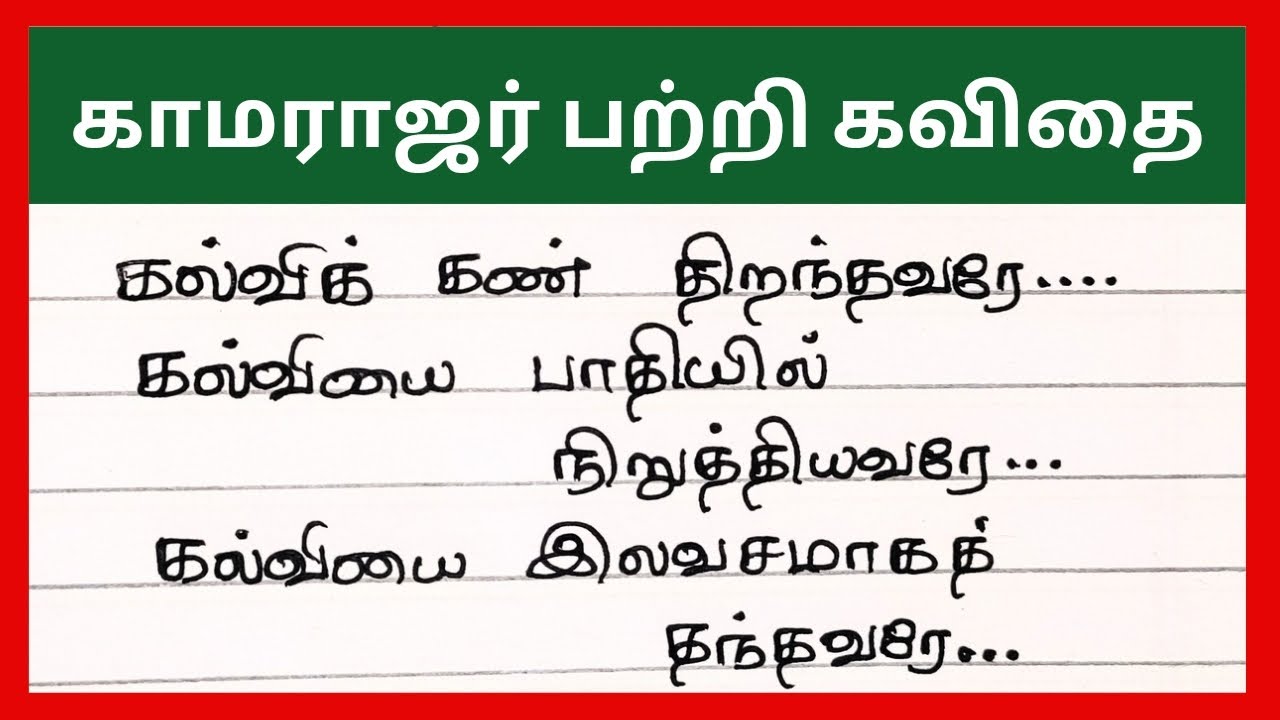 காமராஜர் பற்றி கவிதை
கல்விக் கண் திறந்தவரே....
கல்வியை பாதியில்
நிறுத்தியவரே...
கல்வியை இலவசமாகத்
தந்தவரே...